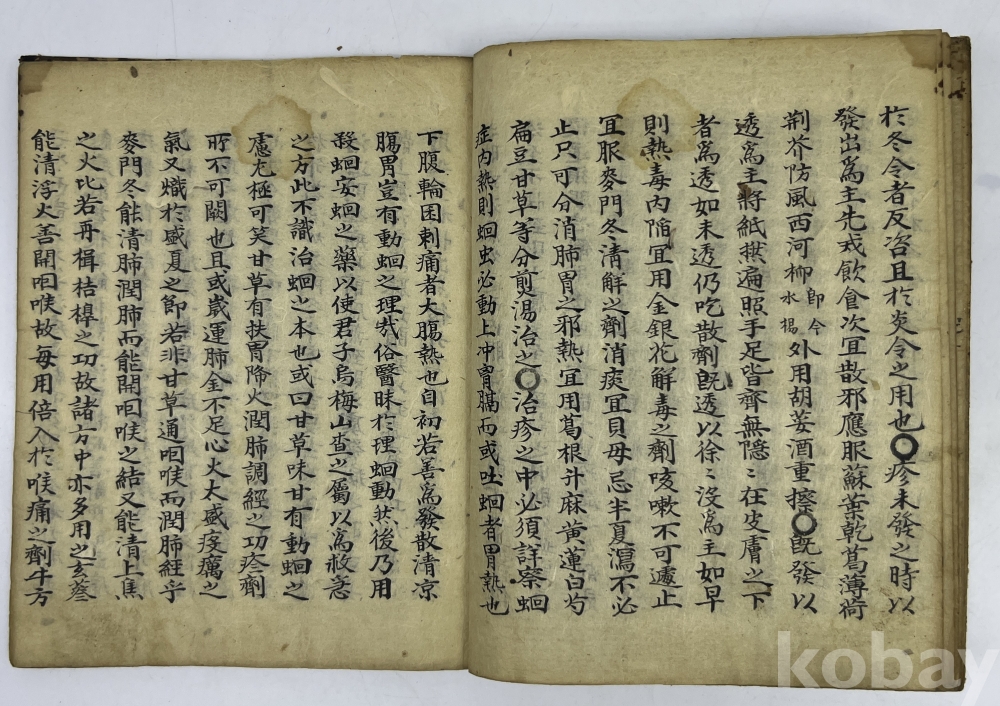 於冬令者反咨且於炎令之用也○疹未發之時以
發出爲主先戒飮食次宜散邪應服蘇葉乾葛薄荷
荆芥防風西河柳卽今水楊外用胡荽酒重擦○旣發以
透爲主將紙撚遍照手足皆齊無隱〻在皮膚之下
者爲透如未透仍吃散劑旣透以徐〻沒爲主如早
則熱毒內陷宜用金銀花解毒之劑咳嗽不可遽止
宜服麥門冬淸解之劑消痰宜貝母忌半夏瀉不必
止只可分消肺胃之邪熱宜用葛根升麻黃蓮白芍
扁豆甘草等分煎湯治之○治疹之中必須詳察蛔
症內熱則蛔虫必動上冲胃膈而或吐蛔者胃熱也
下腹輪囷刺痛者大腸熱也自初若善爲發散淸凉
腸胃豈有動蛔之理哉俗醫昧於理蛔動然後乃用
殺蛔安蛔之藥以使君子烏梅山查之屬以爲救急
之方此不識治蛔之本也或曰甘草味甘有動蛔之
慮尤極可笑甘草有扶胃降火潤肺調經之功疹劑
所不可闕也且或歲運肺金不足心火太盛疫癘之
氣又熾於盛夏之節若非甘草通咽喉而潤肺經乎
麥門冬能淸肺潤肺而能開咽喉之結又能淸上焦
之火比若再楫桔槹之功故諸方中亦多用之玄蔘
能淸浮火善開咽喉故每用倍入於喉痛之劑牛方
kobay